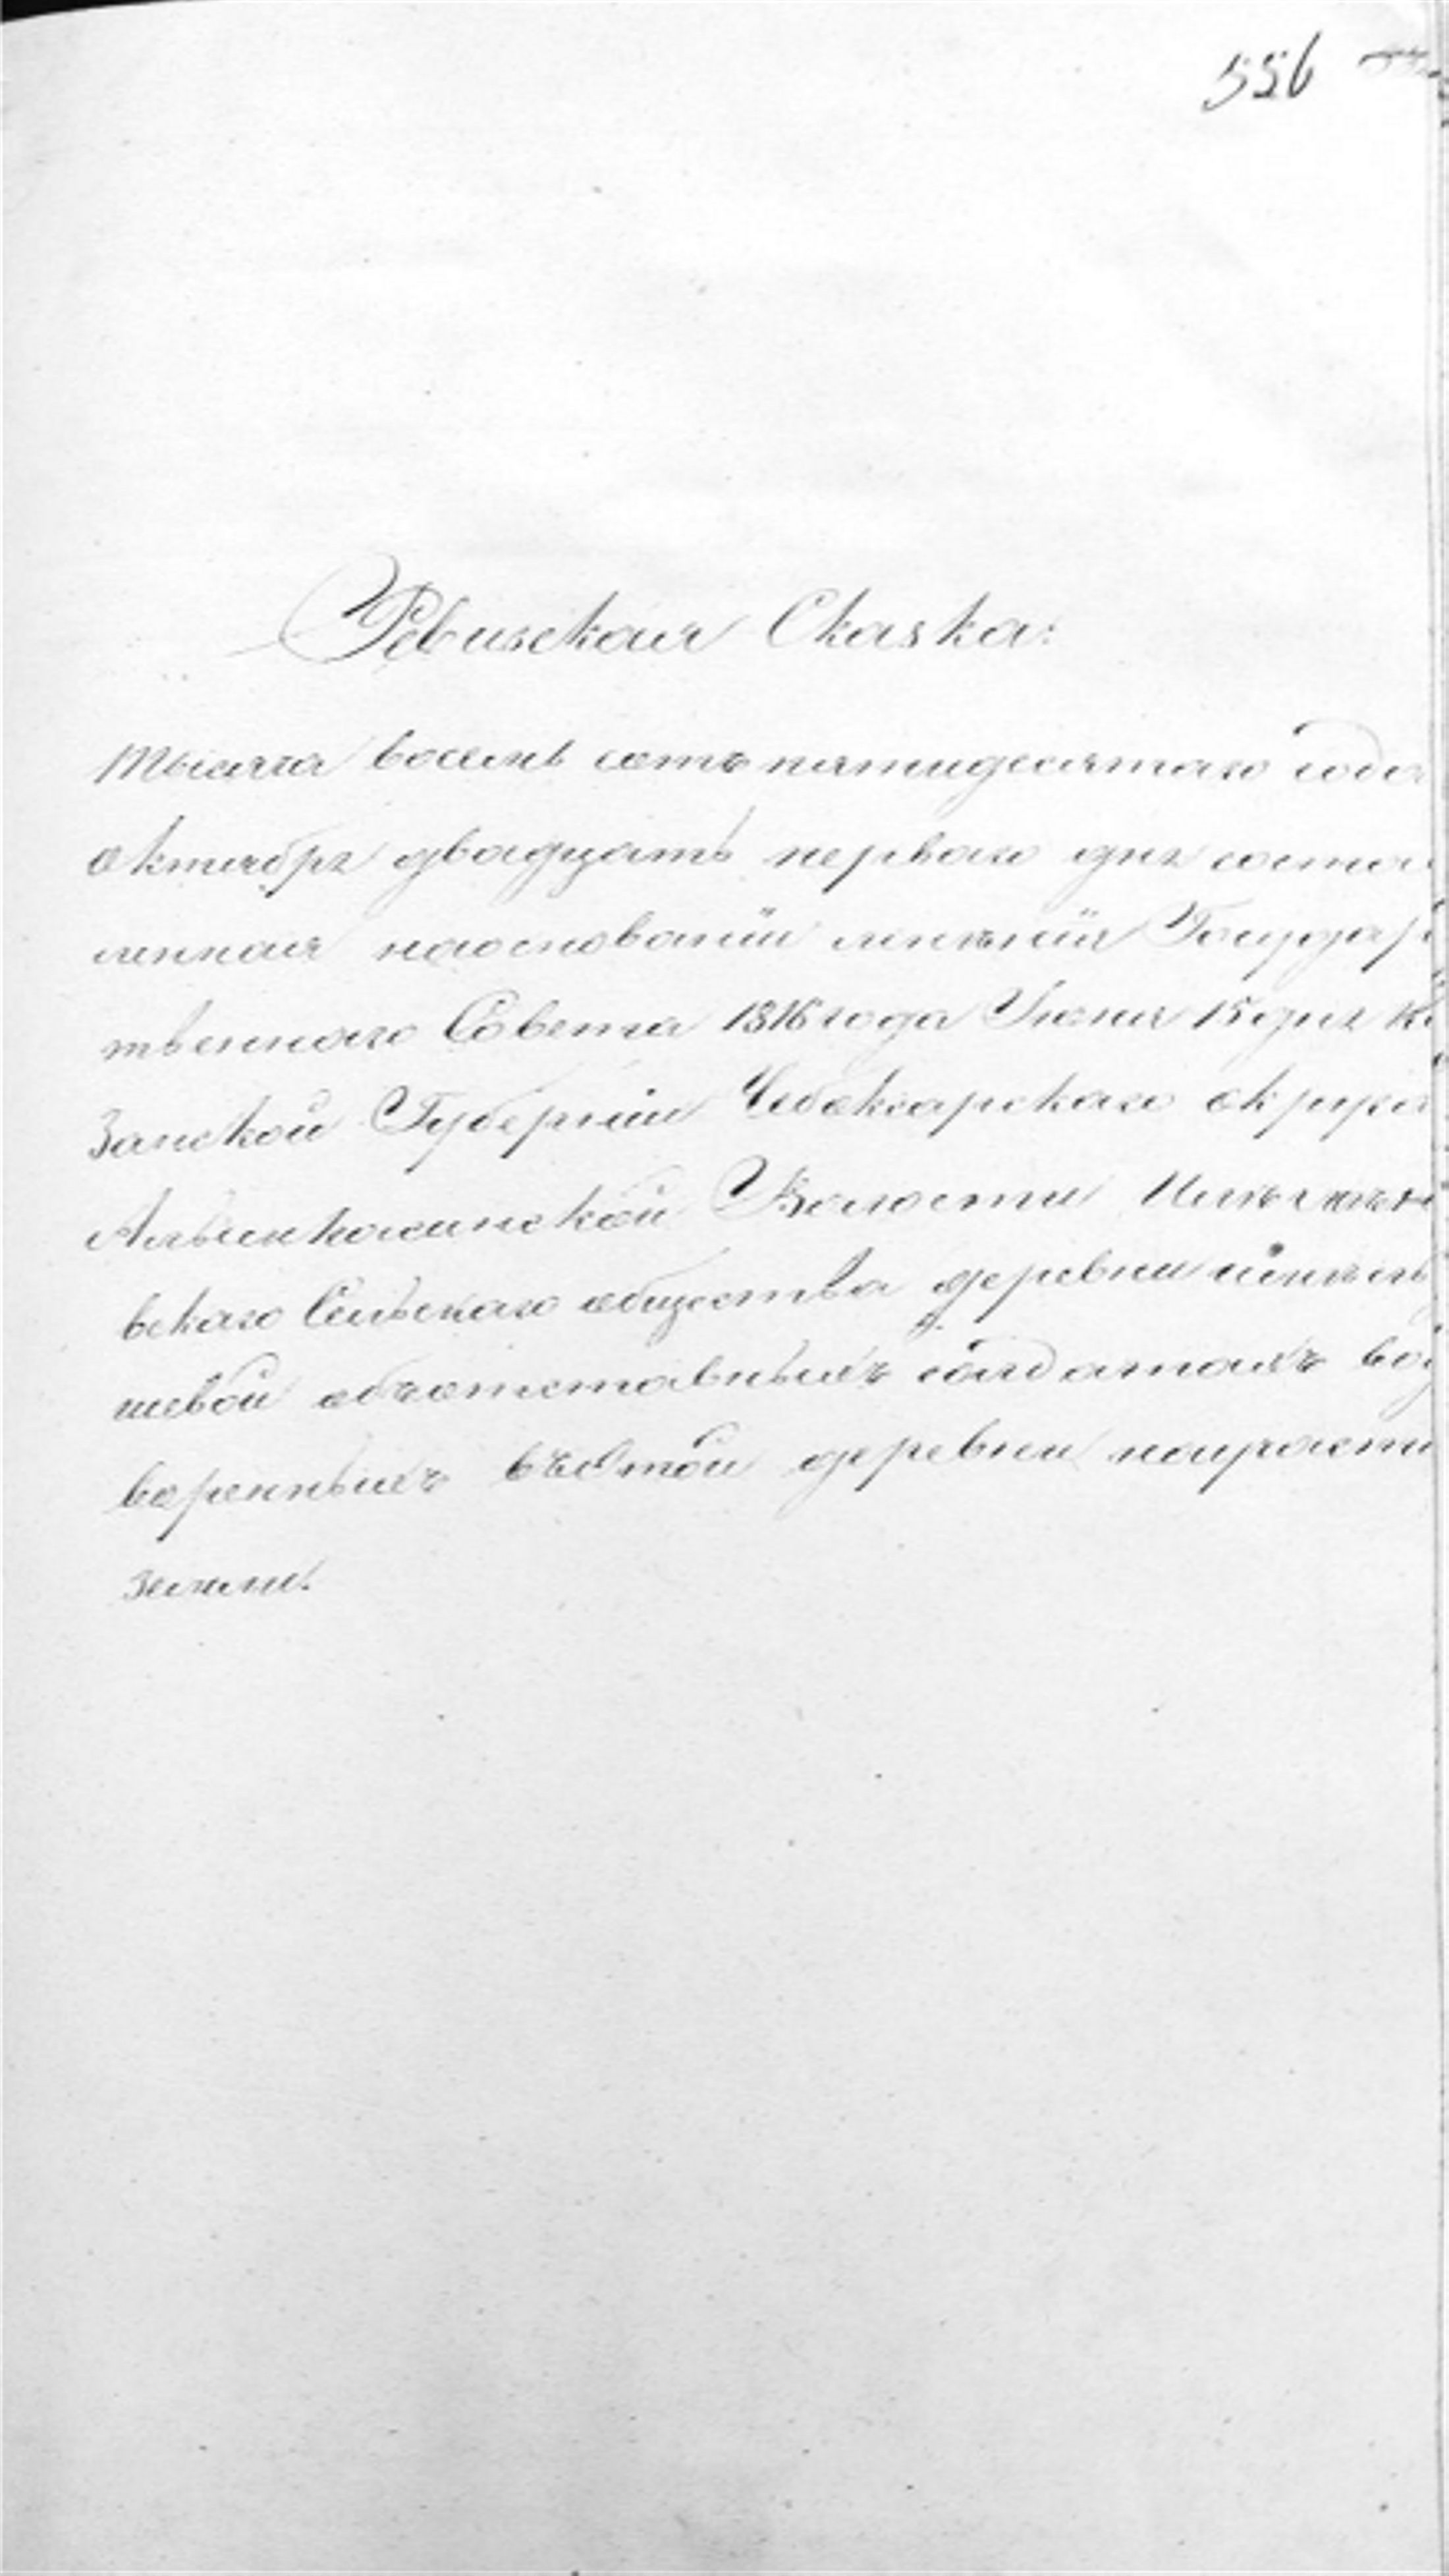 556
Ревизская Сказка:
Тысяча восемь сотъ пятидесятаго года
октября двадцать перваго дня соста
ленная наосновании мнѣнія Государ
твеннаго Совета 1816 года Июня 15 дня Ка
занской Губерніи Чебоксарскаго округа
Алымкасинской Волости
вскаго Сельскаго общества деревни
шевой объотставныхъ солдатахъ вод
воренныхъ въэтой деревни
земли.